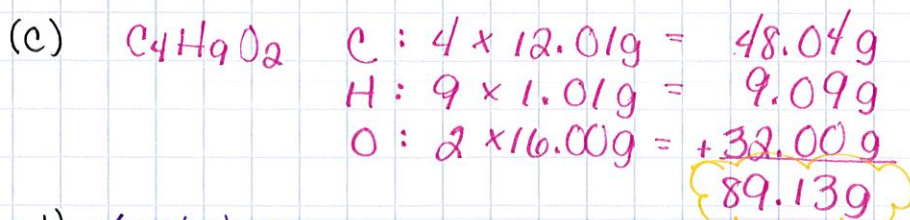 (c) C4H9O2 C : 4 × 12.01g = 48.04g
H : 9 × 1.01g = 9.09g
O : 2 × 16.00g = + 32.00 g
89.13g